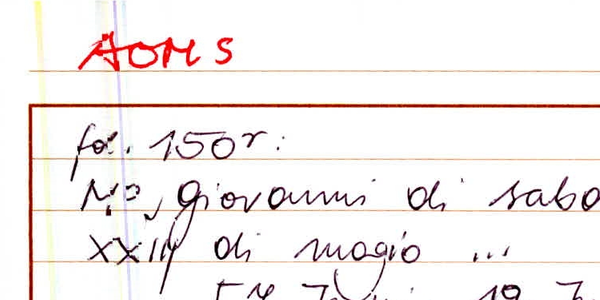 AOMS
fol. 150r:
No, giovanni di sabo
XXIII di magio ...